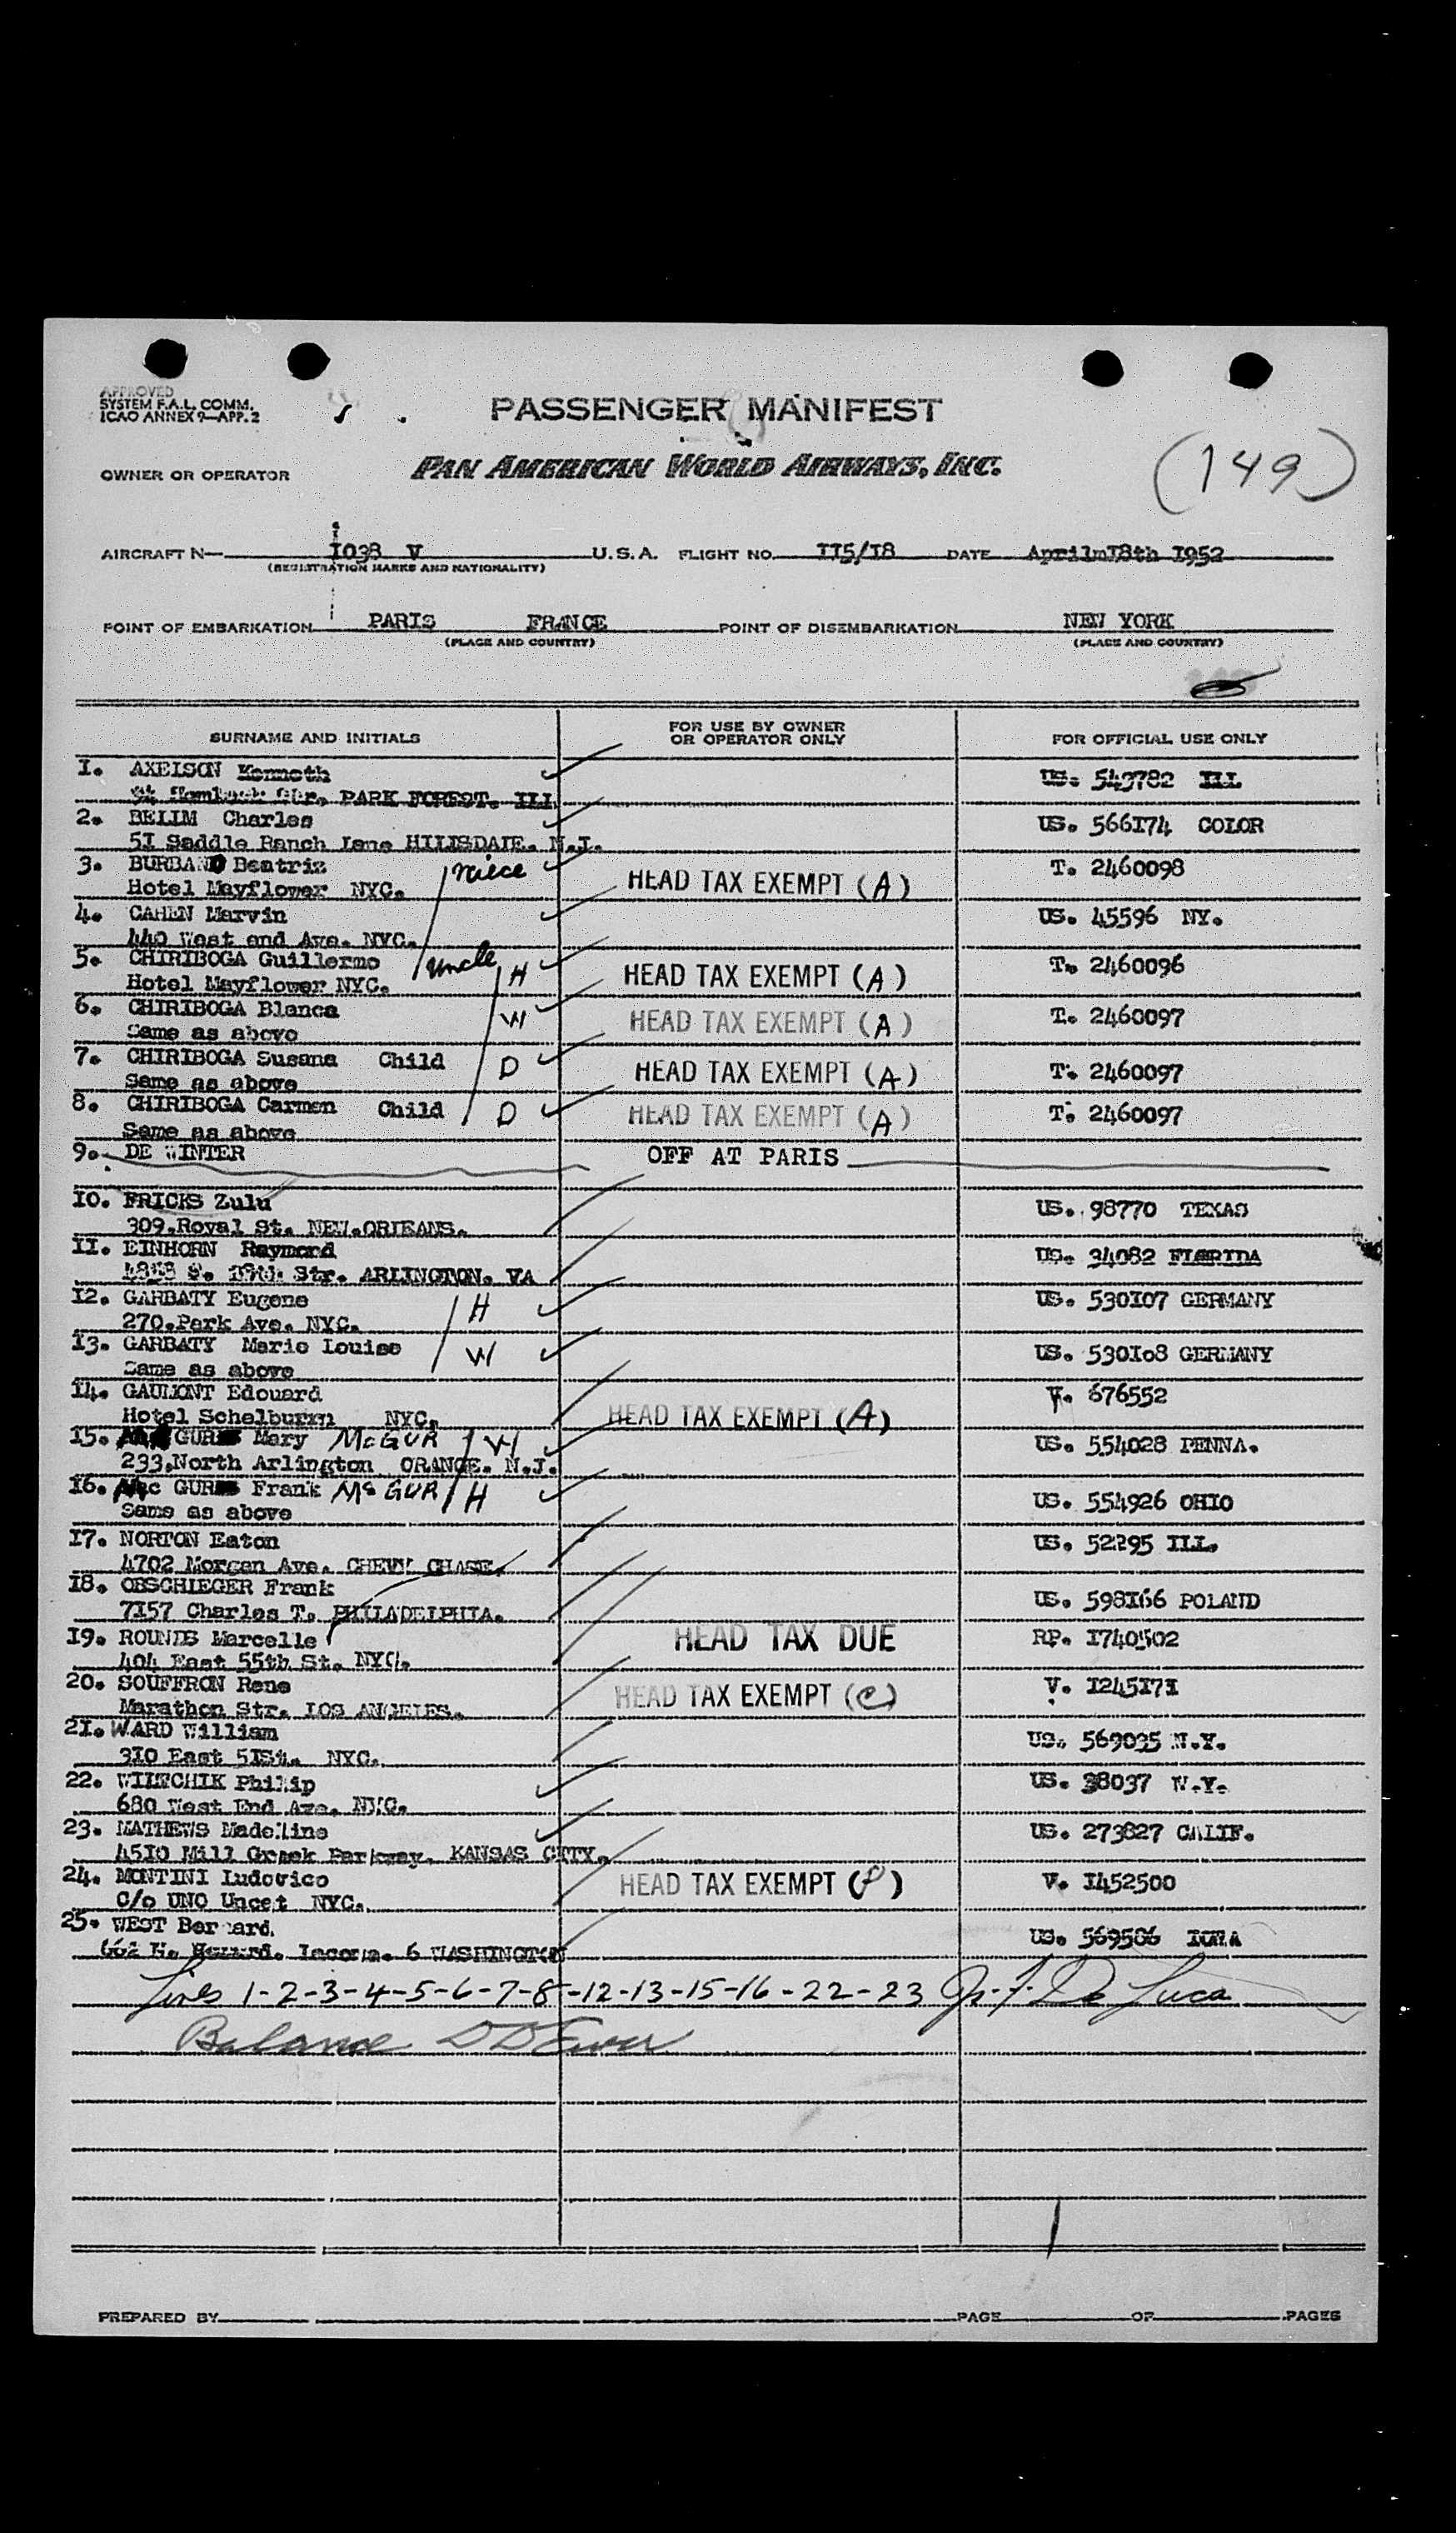 APPROVED
SYSTEM F.A.L. COMM.
ICAO ANNEX 9—APP. 2
PASSENGER MANIFEST
OWNER OR OPERATOR PAN AMERICAN WORLD AIRWAYS, INC.
(149)
AIRCRAFT N— I038 V U.S.A. FLIGHT NO. II5/I8 DATE AprilmI8th I952
(REGISTRATION MARKS AND NATIONALITY)
POINT OF EMBARKATION PARIS FRANCE POINT OF DISEMBARKATION NEW YORK
(PLACE AND COUNTRY) (PLACE AND COUNTRY)
SURNAME AND INITIALS FOR USE BY OWNER OR OPERATOR ONLY FOR OFFICIAL USE ONLY
I. AXELSON Kenneth US. 543782 ILL
PARK FOREST. ILL
2. BELIM Charles US. 566I74 COLOR
5I Saddle Ranch Lane HILLSDALE. N.J.
3. BURBANO Beatriz niece HEAD TAX EXEMPT (A) T. 2460098
Hotel Mayflower NYC.
4. CAHEN Marvin US. 45596 NY.
440 West end Ave. NYC.
5. CHIRIBOGA Guillermo uncle H HEAD TAX EXEMPT (A) T. 2460096
Hotel Mayflower NYC.
6. CHIRIBOGA Blanca W HEAD TAX EXEMPT (A) T. 2460097
Same as above
7. CHIRIBOGA Susana Child D HEAD TAX EXEMPT (A) T. 2460097
Same as above
8. CHIRIBOGA Carmen Child D HEAD TAX EXEMPT (A) T. 2460097
Same as above
9. DE WINTER OFF AT PARIS
I0. FRICKS Zulu US. 98770 TEXAS
309.Royal St. NEW.ORLEANS.
II. EINHORN Raymond US. 34082 FLORIDA
Str. ARLINGTON. VA
I2. GARBATY Eugene H US. 530I07 GERMANY
270.Park Ave. NYC.
I3. GARBATY Marie Louise W US. 530I08 GERMANY
Same as above
I4. GAUMONT Edouard HEAD TAX EXEMPT (A) V. 676552
Hotel Schelburrn NYC.
I5. GUR Mary McGUR W US. 554028 PENNA.
233.North Arlington ORANGE. N.J.
I6. Mc GUR Frank McGUR H US. 554926 OHIO
Same as above
I7. NORTON Eaton US. 52295 ILL.
4702 Morgan Ave. CHEVY CHASE.
I8. OBSCHLEGER Frank US. 598I66 POLAND
7I57 Charles T. PHILADELPHIA.
I9. ROUNDS Marcelle HEAD TAX DUE RP. I740502
404 East 55th St. NYC.
20. SOUFFRON Rene HEAD TAX EXEMPT (C) V. I245I7I
Marathon Str. LOS ANGELES.
2I. WARD William US. 569035 N.Y.
3I0 East 5ISt. NYC.
22. WILTCHIK Philip US. 38037 N.Y.
680 West End Ave. NYC.
23. MATHEWS Madeline US. 273827 CALIF.
45I0 Mill Creek Parkway. KANSAS CITY.
24. MONTINI Ludovico HEAD TAX EXEMPT V. I452500
C/o UNO Uncet NYC.
25. WEST Bernard. US. 569586 IOWA
6 WASHINGTON
Lines 1-2-3-4-5-6-7-8-12-13-15-16-22-23 De Luca
Balance
PREPARED BY PAGE OF PAGES